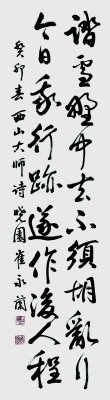 踏雪野中去不須胡亂行
今日我行跡遂作後人程
癸卯春西山大師詩曉園崔永蘭